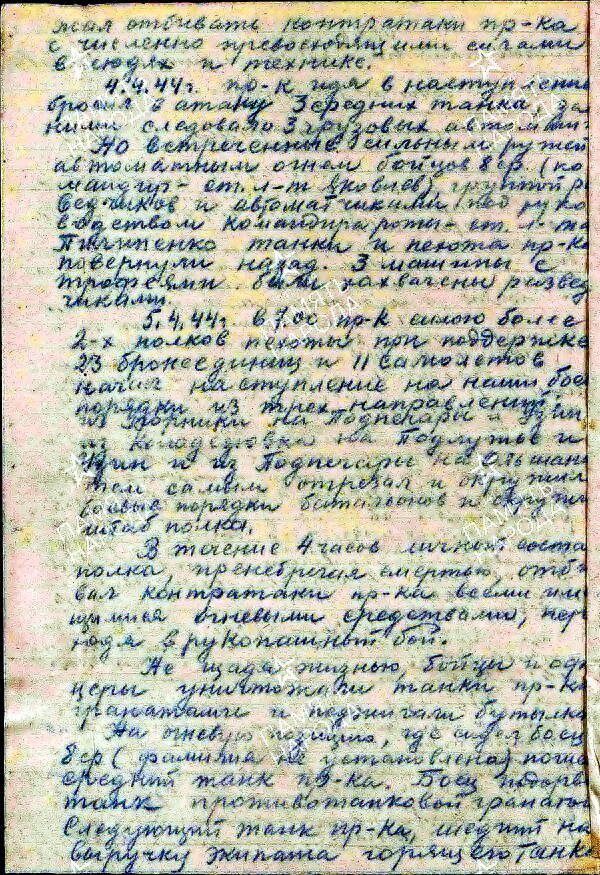 жал отбивать контратаки пр-ка
с численно превосходящими силами
в людях и технике.
4.4.44г. пр-к идя в наступление
бросил в атаку 3 средних танка, за
ними следовало 3 грузовых автомаш
Но встреченные сильным ружей
автоматным огнем бойцов 8ср (ко
мандир - ст. л-т Яковлев), группой ра
ведчиков и автоматчиками под руко
водством командира роты - ст. л-та
Пилипенко танки и пехота пр-ка
повернули назад. 3 машины с
трофеями были захвачены развед
чиками.
5.4.44г. в 7.00 пр-к силою более
2-х полков пехоты при поддержке
23 бронеединиц и 11 самолетов
начал наступление на наши бое
порядки из трех направлений:
из на Подпекары и
из Колодеювка на Подлужье и
и из Подпечары на Ольшан
тем самым отрезал и окружил
боевые порядки батальонов и окружил
штаб полка.
В течение 4 часов личный соста
полка, пренебрегая смертью, отби
вал контратаки пр-ка всеми име
щимися огневыми средствами, пере
ходя в рукопашный бой.
Не щадя жизнью, бойцы и офи
церы уничтожали танки пр-ка
гранатами и поджигали бутылка
На огневую позицию, где сидел боец
8ср (фамилия не установлена) пошел
средний танк пр-ка. Боец подорва
танк противотанковой гранатой
Следующий танк пр-ка, шедший на
выручку экипажа горящего танка
ПАМЯТЬ НАРОДА